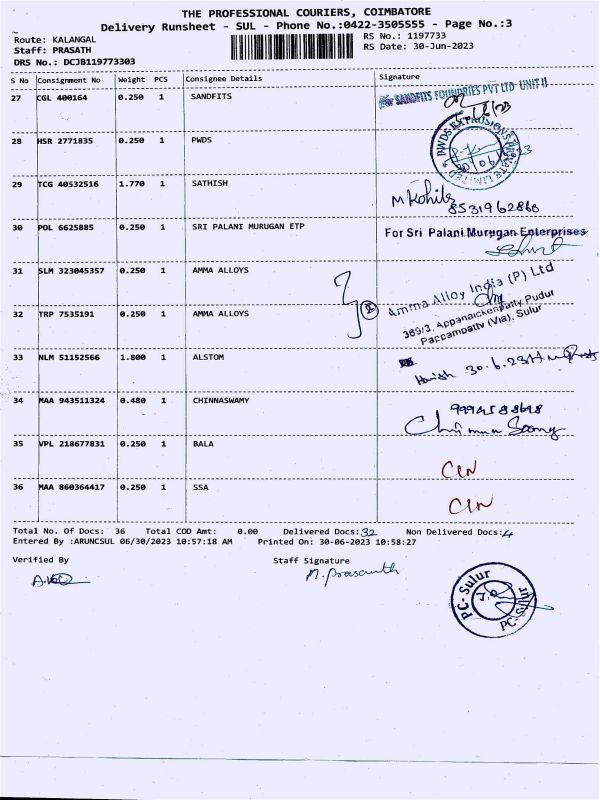 THE PROFESSIONAL COURIERS, COIMBATORE
Delivery Runsheet - SUL - Phone No.:0422-3505555 - Page No.:3
Route: KALANGAL
Staff: PRASATH
DRS No.: DCJB119773303
RS No.: 1197733
RS Date: 30-Jun-2023
S No Consignment No Weight PCS Consignee Details Signature
27 CGL 400164 0.250 1 SANDFITS
SANDFITS FOUNDRIES PVT LTD UNIT II
28 HSR 2771835 0.250 1 PWDS
29 TCG 40532516 1.770 1 SATHISH
8531962860
30 POL 6625885 0.250 1 SRI PALANI MURUGAN ETP For Sri Palani Murugan Enterprises
31 SLM 323045357 0.250 1 AMMA ALLOYS
Amma Alloy India (P) Ltd
32 TRP 7535191 0.250 1 AMMA ALLOYS
2
389/3, Appanaickenpatty Pudur
Pappampatty (Via), Sulur
33 NLM 51152566 1.800 1 ALSTOM
Harish 30.6.23
34 MAA 943511324 0.480 1 CHINNASWAMY
35 VPL 218677831 0.250 1 BALA
CLN
36 MAA 860364417 0.250 1 SSA
CLN
Total No. Of Docs: 36 Total COD Amt: 0.00 Delivered Docs: 32 Non Delivered Docs: 4
Entered By :ARUNCSUL 06/30/2023 10:57:18 AM Printed On: 30-06-2023 10:58:27
Verified By Staff Signature
M. Prasanth
PC-Sulur